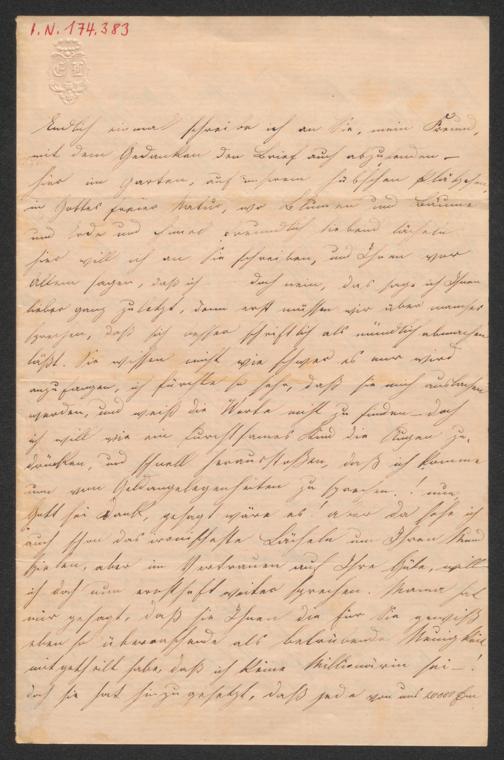 I.N. 174.383
EL
Endlich einmal schreibe ich an Sie, mein Freund,
mit dem Gedanken den Brief auch abzusenden –
hier im Garten, auf unserem hübschen Plätzchen,
in Gottes freier Natur, wo Blumen und Bäume
und Erde und Himmel freundlich liebend lächeln
hier will ich an Sie schreiben, und Ihnen vor
Allem sagen, daß ich doch nein, das sage ich Ihnen
lieber ganz zuletzt, denn erst müssen wir über manches
sprechen, daß sich besser schriftlich als mündlich abmachen
läßt. Sie wissen nicht wie schwer es mir wird
anzufangen, ich fürchte so sehr, daß Sie mich auslachen
werden, und weiß die Worte nicht zu finden – doch
ich will wie ein furchtsames Kind die Augen zu
drücken, und schnell herausstoßen, daß ich komme
um von Geldangelegenheiten zu sprechen.! nun
Gott sei Dank, gesagt wäre es! aber da sehe ich
auch schon das ironischste Lächeln um Ihren Mund
spielen, aber im Vertrauen auf Ihre Güte, will
ich doch nun ernsthaft weiter sprechen. Mama hat
mir gesagt, daß sie Ihnen die für Sie gewiß
eben so überraschende als betrübende Neuigkeit
mitgetheilt habe, daß ich keine Millionärin sei –!
doch sie hat hinzu gesetzt, daß jede von uns 10000